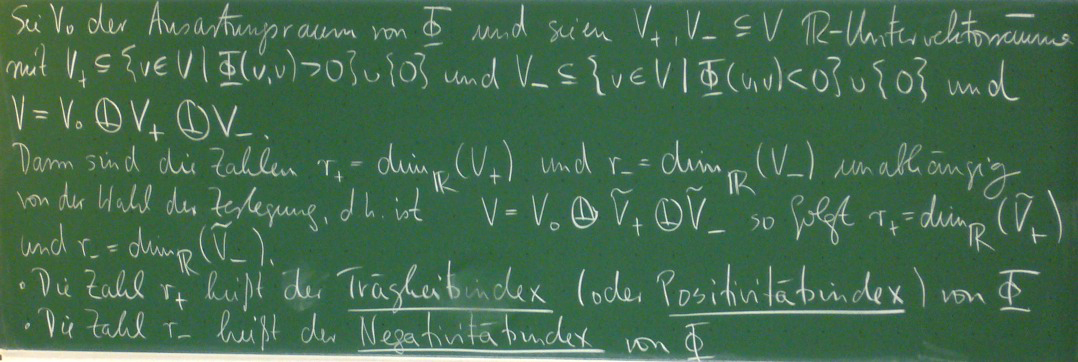 Sei V₀ der Ausartungsraum von Φ und seien V₊, V₋ ⊆ V ℝ-Untervektorräume
mit V₊ ⊆ {v∈V | Φ(v,v)>0}∪{0} und V₋ ⊆ {v∈V | Φ(v,v)<0}∪{0} und
V = V₀ ⦹ V₊ ⦹ V₋.
Dann sind die Zahlen r₊ = dim_ℝ(V₊) und r₋ = dim_ℝ(V₋) unabhängig
von der Wahl der Zerlegung, d.h. ist V = V₀ ⦹ Ṽ₊ ⦹ Ṽ₋ so folgt r₊ = dim_ℝ(Ṽ₊)
und r₋ = dim_ℝ(Ṽ₋).
• Die Zahl r₊ heißt der Trägheitsindex (oder Positivitätsindex) von Φ
• Die Zahl r₋ heißt der Negativitätsindex von Φ